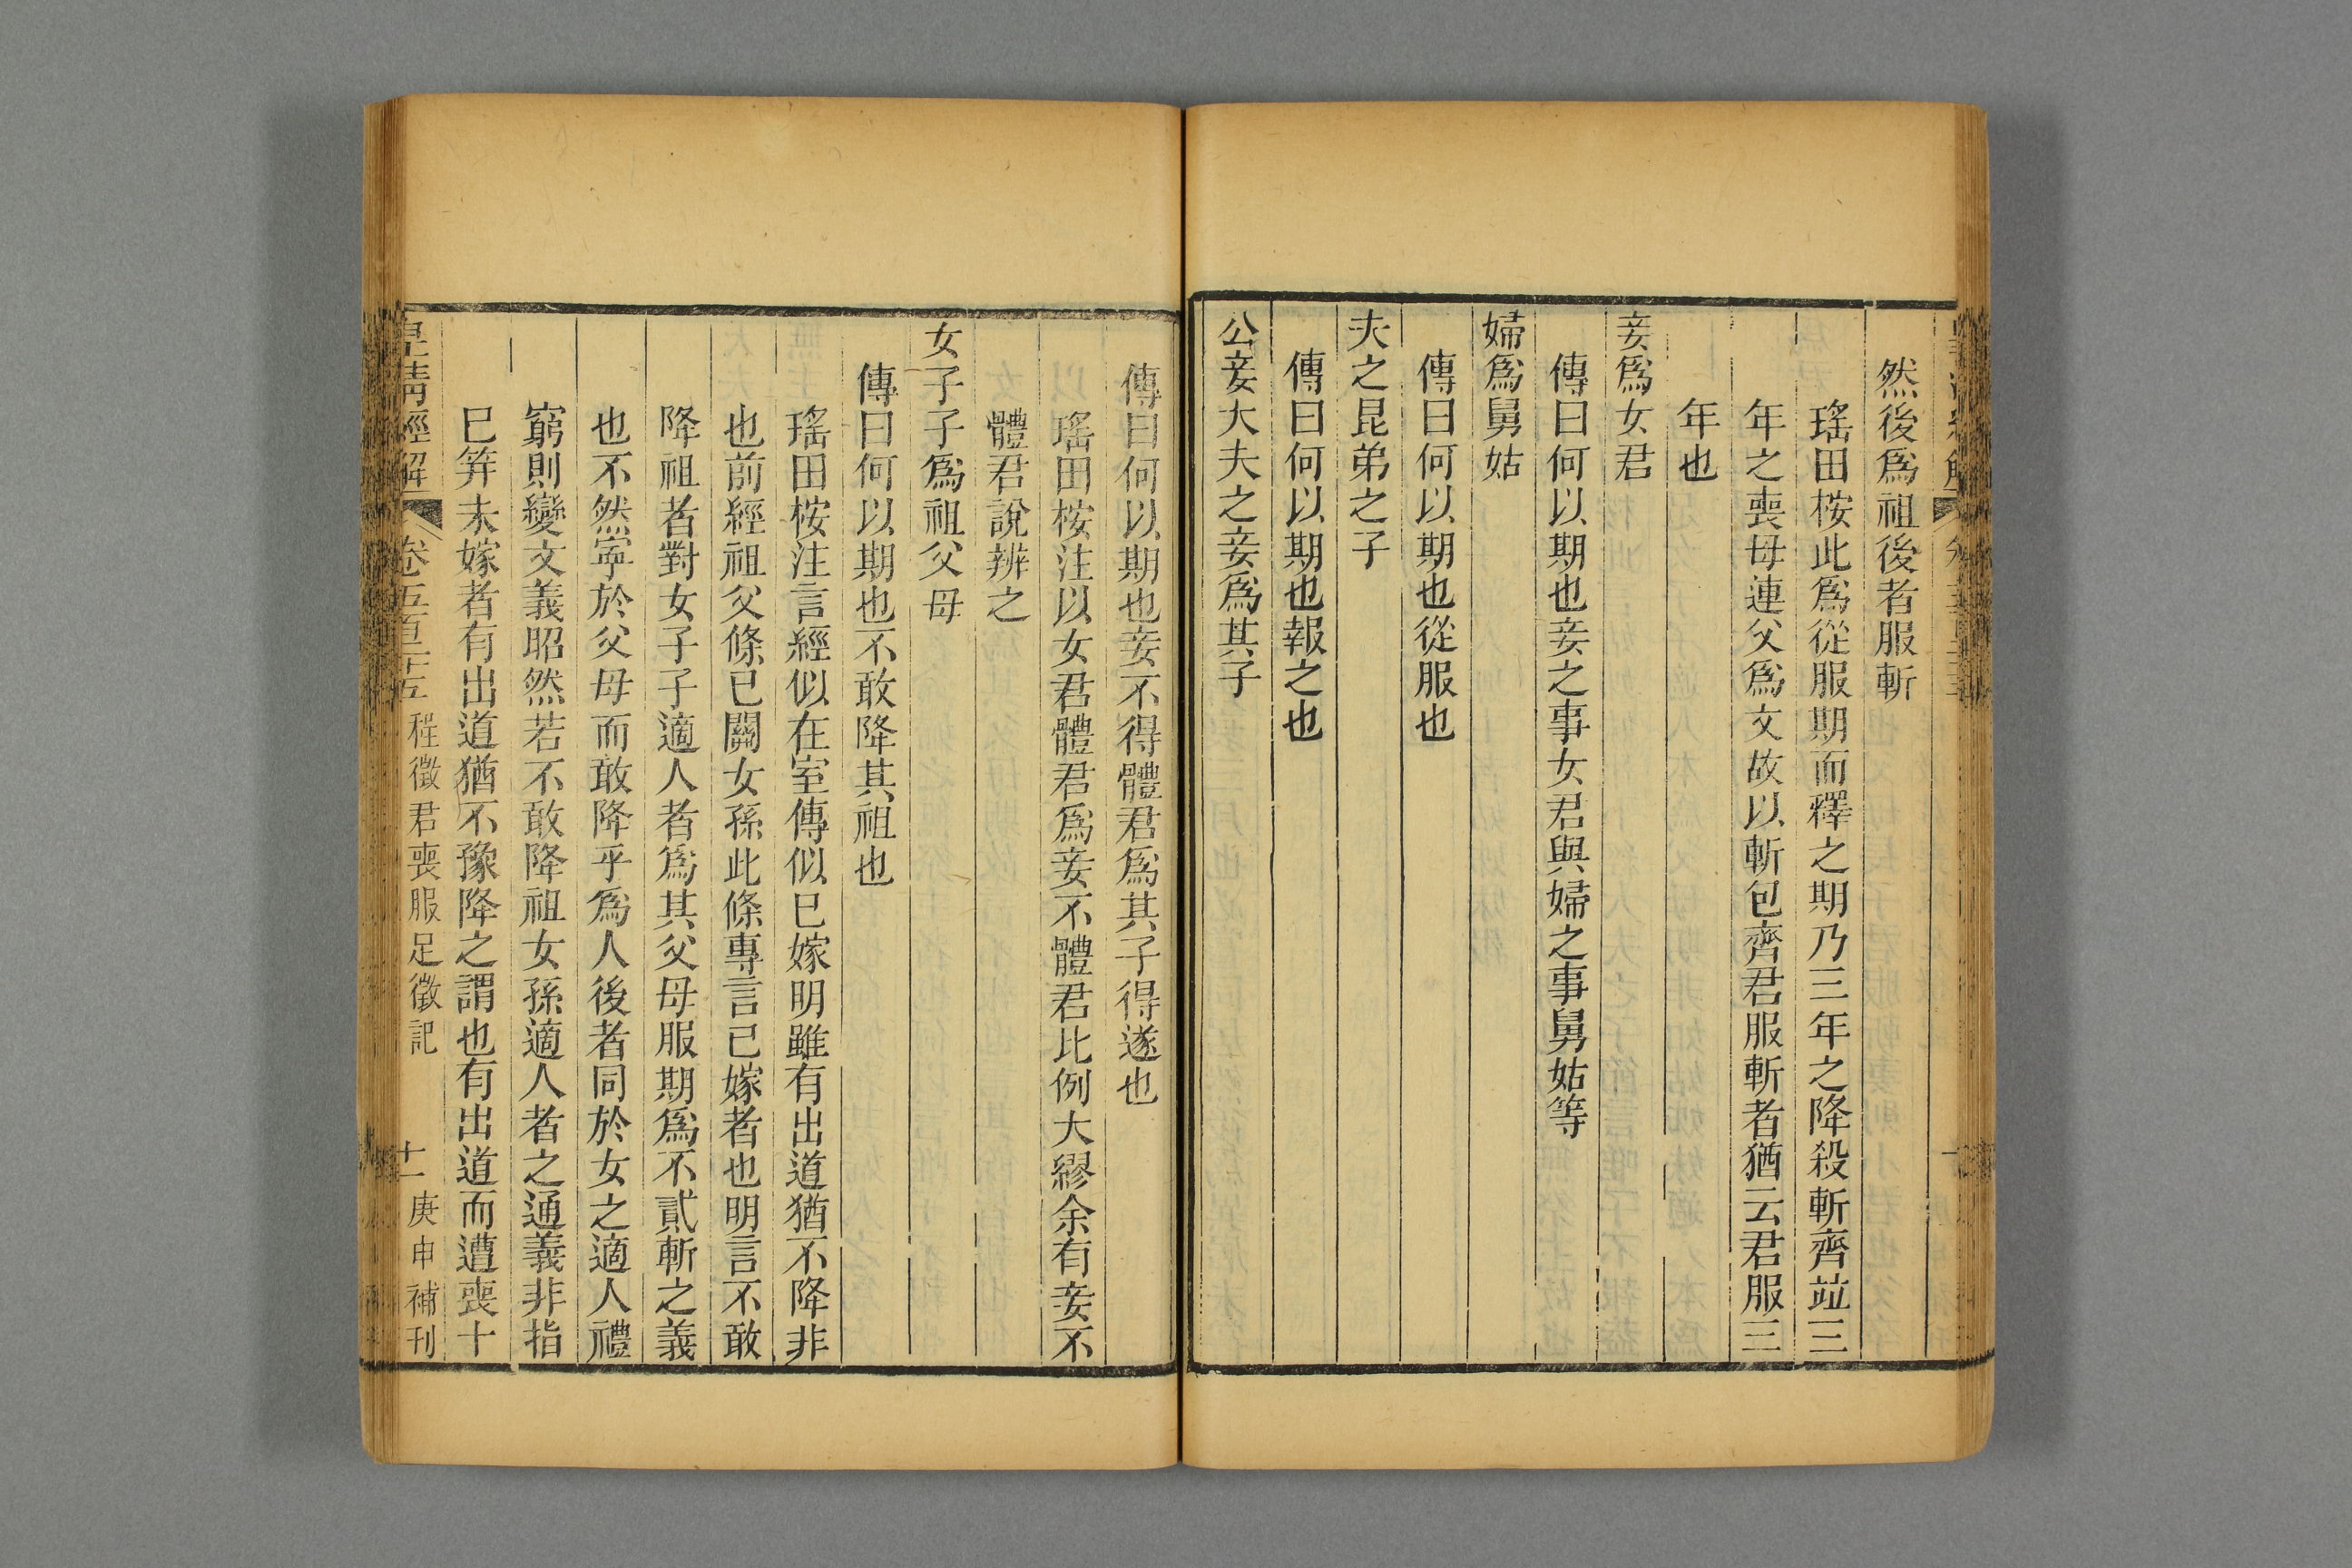 然後爲祖後者服斬
瑤田桉此爲從服期而釋之期乃三年之降殺斬齊竝三
年之喪母連父爲文故以斬包齊君服斬者猶云君服三
年也
妾爲女君
傳曰何以期也妾之事女君與婦之事舅姑等
婦爲舅姑
傳曰何以期也從服也
夫之昆弟之子
傳曰何以期也報之也
公妾大夫之妾爲其子
傳曰何以期也妾不得體君爲其子得遂也
瑤田桉注以女君體君爲妾不體君比例大繆余有妾不
體君說辨之
女子子爲祖父母
傳曰何以期也不敢降其祖也
瑤田桉注言經似在室傳似巳嫁明雖有出道猶不降非
也前經祖父條已關女孫此條專言已嫁者也明言不敢
降祖者對女子子適人者爲其父母服期爲不貳斬之義
也不然寧於父母而敢降乎爲人後者同於女之適人禮
窮則變文義昭然若不敢降祖女孫適人者之通義非指
巳笄未嫁者有出道猶不豫降之謂也有出道而遭喪十
皇清經解 卷五百二十五 程徵君喪服足徵記 十一 庚申補刊